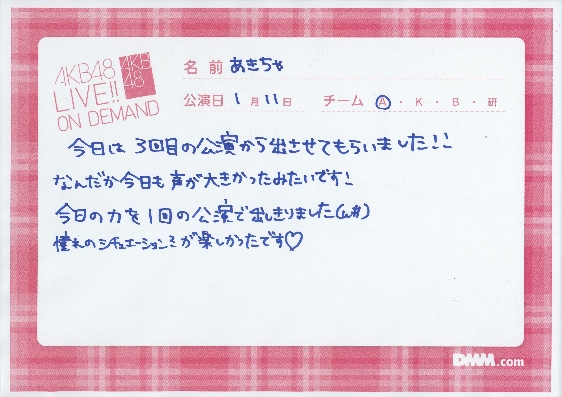 AKB48
LIVE!!
ON DEMAND
AKB
48
名前 あきちゃ
公演日 1月11日 チーム A・K・B・研
今日は 3回目の公演から出させてもらいました!!
なんだか今日も 声が大きかったみたいです!
今日の力を1回の公演で出しきりました(ω#)
憧れのシチュエーションミが楽しかったです♡
DMM.com